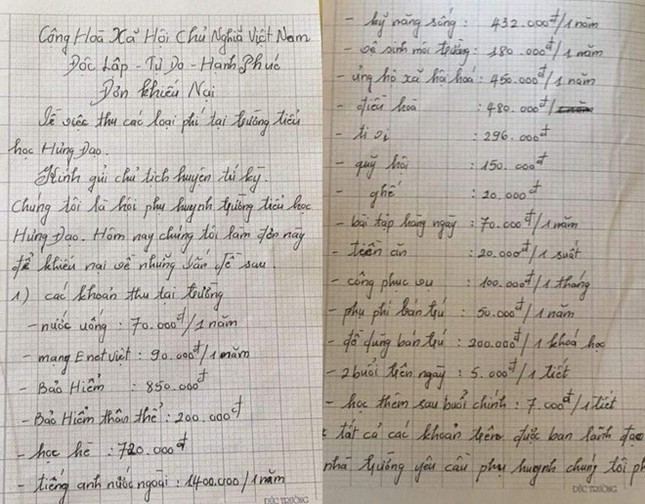 Công Hoà Xã Hội Chủ Nghĩa Việt Nam
Độc Lập - Tự Do - Hạnh Phúc
Đơn khiếu Nại
Về việc thu các loại phí tại trường tiểu
học Hưng Đạo.
Kính gửi chủ tịch huyện tứ kỳ.
Chúng tôi là hội phụ huynh trường tiểu học
Hưng Đạo. Hôm nay chúng tôi làm đơn này
để khiếu nại về những vấn đề sau.
1) các khoản thu tại trường
- nước uống : 70.000đ/1 năm
- mạng Enetviệt : 90.000đ/1 năm
- Bảo Hiểm : 850.000đ
- Bảo Hiểm thân thể : 200.000đ
- học hè : 720.000đ
- tiếng anh nước ngoài : 1400.000/1 năm
ĐỨC TRƯỜNG
- kỹ năng sống : 432.000đ/1 năm
- vệ sinh môi trường : 180.000đ/1 năm
- ủng hộ xã hội hoá : 450.000đ/1 năm
- điều hoà : 480.000đ/
- ti vi : 296.000đ
- quỹ hội : 150.000đ
- ghế : 20.000đ
- bài tập hàng ngày : 70.000đ/1 năm
- tiền ăn : 20.000đ/1 suất
- công phục vụ : 100.000đ/1 tháng
- phụ phí bán trú : 50.000đ/1 năm
- đồ dùng bán trú : 200.000đ/1 khoá học
- 2 buổi trên ngày : 5.000đ/1 tiết
- học thêm sau buổi chính : 7.000đ/1 tiết
tất cả các khoản trên được ban lãnh đạo
nhà trường yêu cầu phụ huynh chúng tôi ph
ĐỨC TRƯỜNG